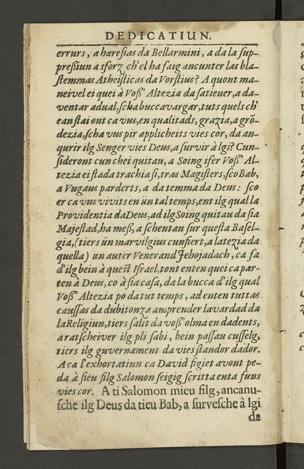 DEDICATIUN.
errurs, a hæresias da Bellarmini, a da la sup-
pressiun a sforz ch'el ha faig ancunter las bla-
stemmas Atheisticas da Vorstius? A quont ma-
neivel ei quei à Voss' Altezia da satiever, a da-
ventar adual, scha buccavargar, tuts quels ch'
ean stai ont ca vus, en qualitads, grazia, a grõ-
dezia, scha vus pir applicheits vies cor, da an-
qurir ilg Senger vies Deus, a survir à lgi? Cun-
sideront cun chei quitau, a Soing iser Voss' Al-
tezia ei stada trachia si, tras Magisters, sco Bab,
a Vugaus parderts, a da temma da Deus: sco
er ca vus vivits en ün tal temps, ent ilg qual la
Providentia da Deus, ad ilg Soing quitau da sia
Majestad, ha mess, a schentau sur questa Basel-
gia, (tiers ün marvilgius cunsiert, a latezia da
quella) un auter Venerand Jehojadach, ca fa
d'ilg bein à quest Israel, tont enten quei ca par-
ten à Deus, co à sia casa, da la bucca d'ilg qual
Voss' Altezia po da tut temps, ad enten tuttas
caussas da dubitonza amprender la vardad da
la Religiun, tiers salit da voss' olma en dadents,
a ratscheiver ilg pli sabi, hein passau cusselg,
tiers ilg guvernament da vies stander dador.
A ca l'exhortatiun ca David figiet avont pe-
da à sieu filg Salomon seigig scritta enta funs
vies cor. A ti Salomon mieu filg, ancanu-
sche ilg Deus da tieu Bab, a survesche à lgi
da